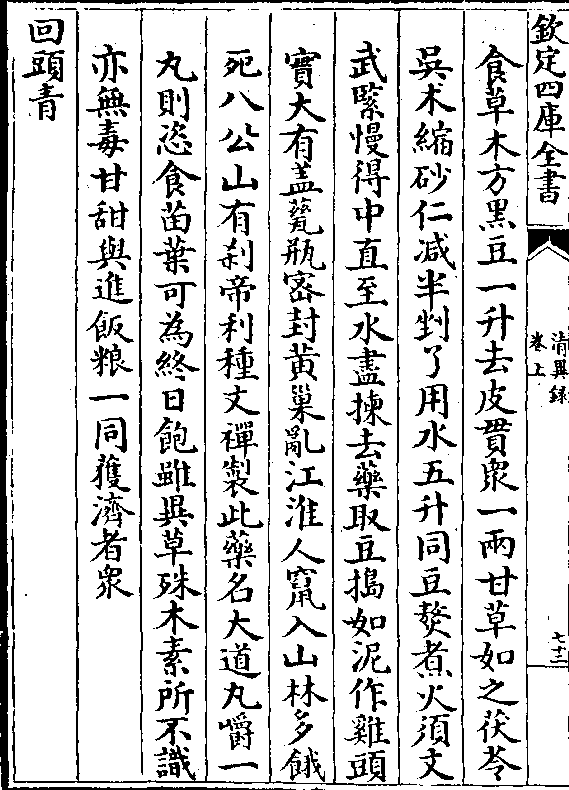 欽定四庫全書
清異録
卷上
七十二
食草木方黒豆一升去皮貫衆一兩甘草如之茯苓
吳术縮砂仁减半剉了用水五升同豆熬煮火須文
武緊慢得中直至水盡揀去藥取豆搗如泥作雞頭
實大有盖甆瓶宻封黄巢亂江淮人竄入山林多餓
死八公山有刹帝利種文禪製此藥名大道丸嚼一
丸則恣食苗葉可為終日飽雖異草殊木素所不識
亦無毒甘甜與進飯粮一同獲濟者衆
回頭青